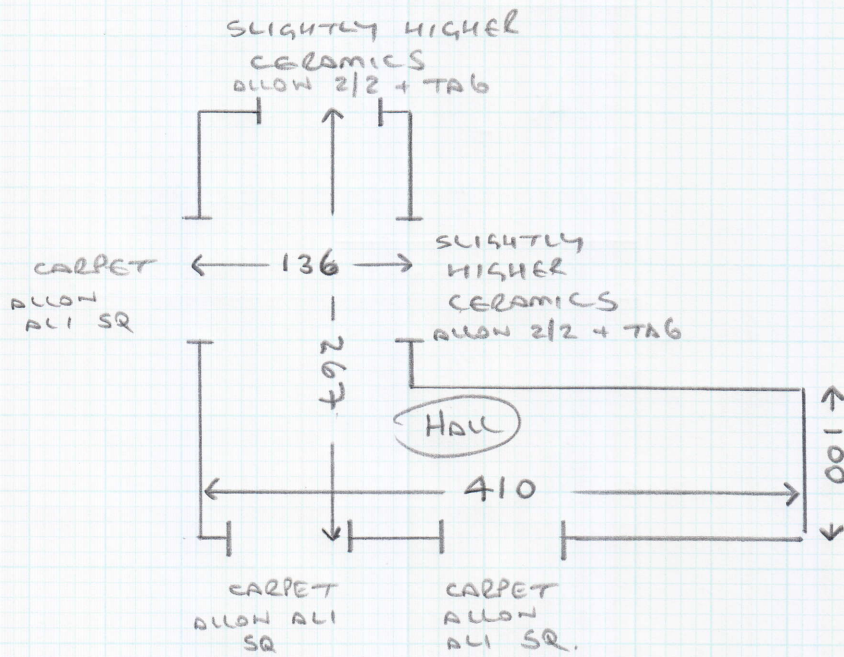 SLIGHTLY HIGHER
CERAMICS
ALLOW 2/2 + TAG
CARPET
ALLOW
ALI SQ
136
SLIGHTLY
HIGHER
CERAMICS
ALLOW 2/2 + TAG
267
HALL
410
100
CARPET
ALLOW ALI
SQ
CARPET
ALLOW
ALI SQ.